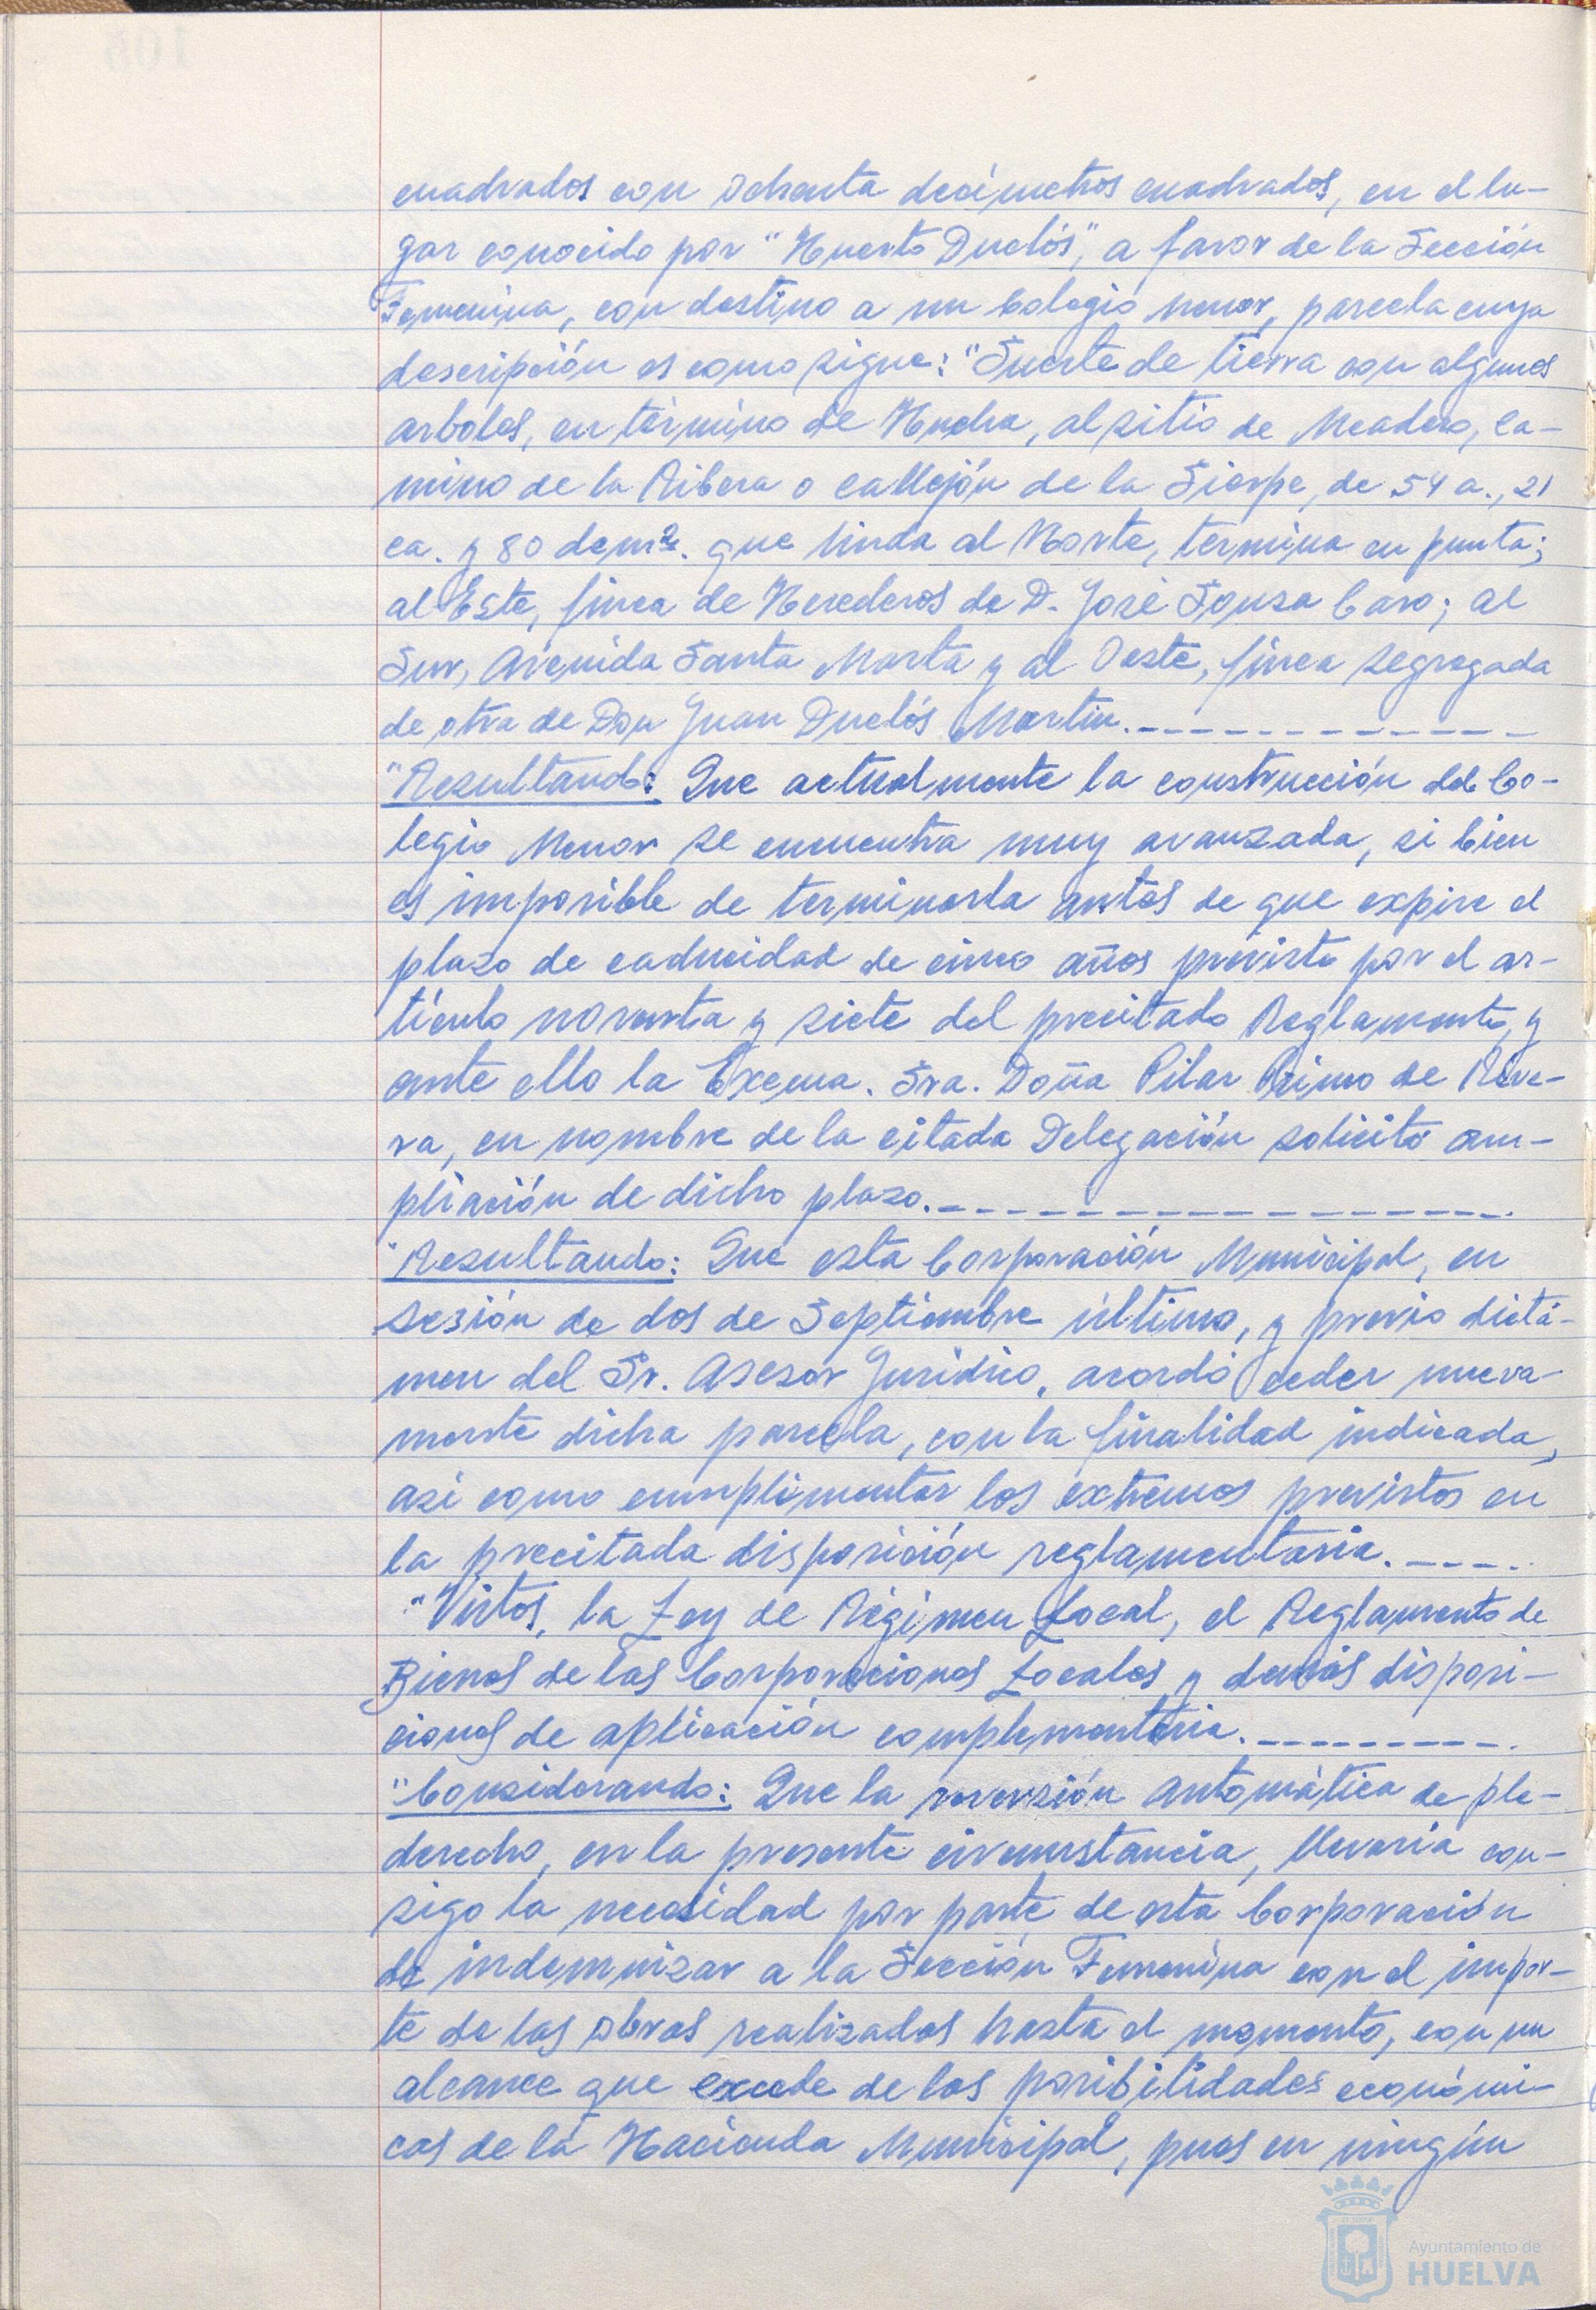 cuadrados con ochenta decímetros cuadrados, en el lu-
gar conocido por "Huerto Duclós", a favor de la Sección
Femenina, con destino a un Colegio Menor, parcela cuya
descripción es como sigue: "Suerte de tierra con algunos
arboles, en término de Huelva, al sitio de Meadero, Ca-
mino de la Ribera o callejón de la Sierpe, de 54 a., 21
ca. y 80 dcm². que linda al Norte, termina en punta;
al Este, finca de Herederos de D. José Sousa Caro; al
Sur, Avenida Santa Marta y al Oeste, finca segregada
de otra de Don Juan Duclós Martin.
"Resultando: Que actualmente la construcción del Co-
legio Menor se encuentra muy avanzada, si bien
es imposible de terminarla antes de que expire el
plazo de caducidad de cinco años previsto por el ar-
tículo noventa y siete del precitado Reglamento, y
ante ello la Excma. Sra. Doña Pilar Primo de Rive-
ra, en nombre de la citada Delegación solicitó am-
pliación de dicho plazo.
"Resultando: Que esta Corporación Municipal, en
sesión de dos de Septiembre último, y previo dictá-
men del Sr. Asesor Jurídico, acordó ceder nueva-
mente dicha parcela, con la finalidad indicada,
asi como cumplimentar los extremos previstos en
la precitada disposición reglamentaria.
"Vistos, la Ley de Régimen Local, el Reglamento de
Bienes de las Corporaciones Locales y demás disposi-
ciones de aplicación complementaria.
"Considerando: Que la reversión automática de ple-
derecho, en la presente circunstancia, llevaria con-
sigo la necesidad por parte de esta Corporación
de indemnizar a la Sección Femenina con el impor-
te de las obras realizadas hasta el momento, con un
alcance que excede de las posibilidades económi-
cas de la Hacienda Municipal, pues en ningún
Ayuntamiento de
HUELVA